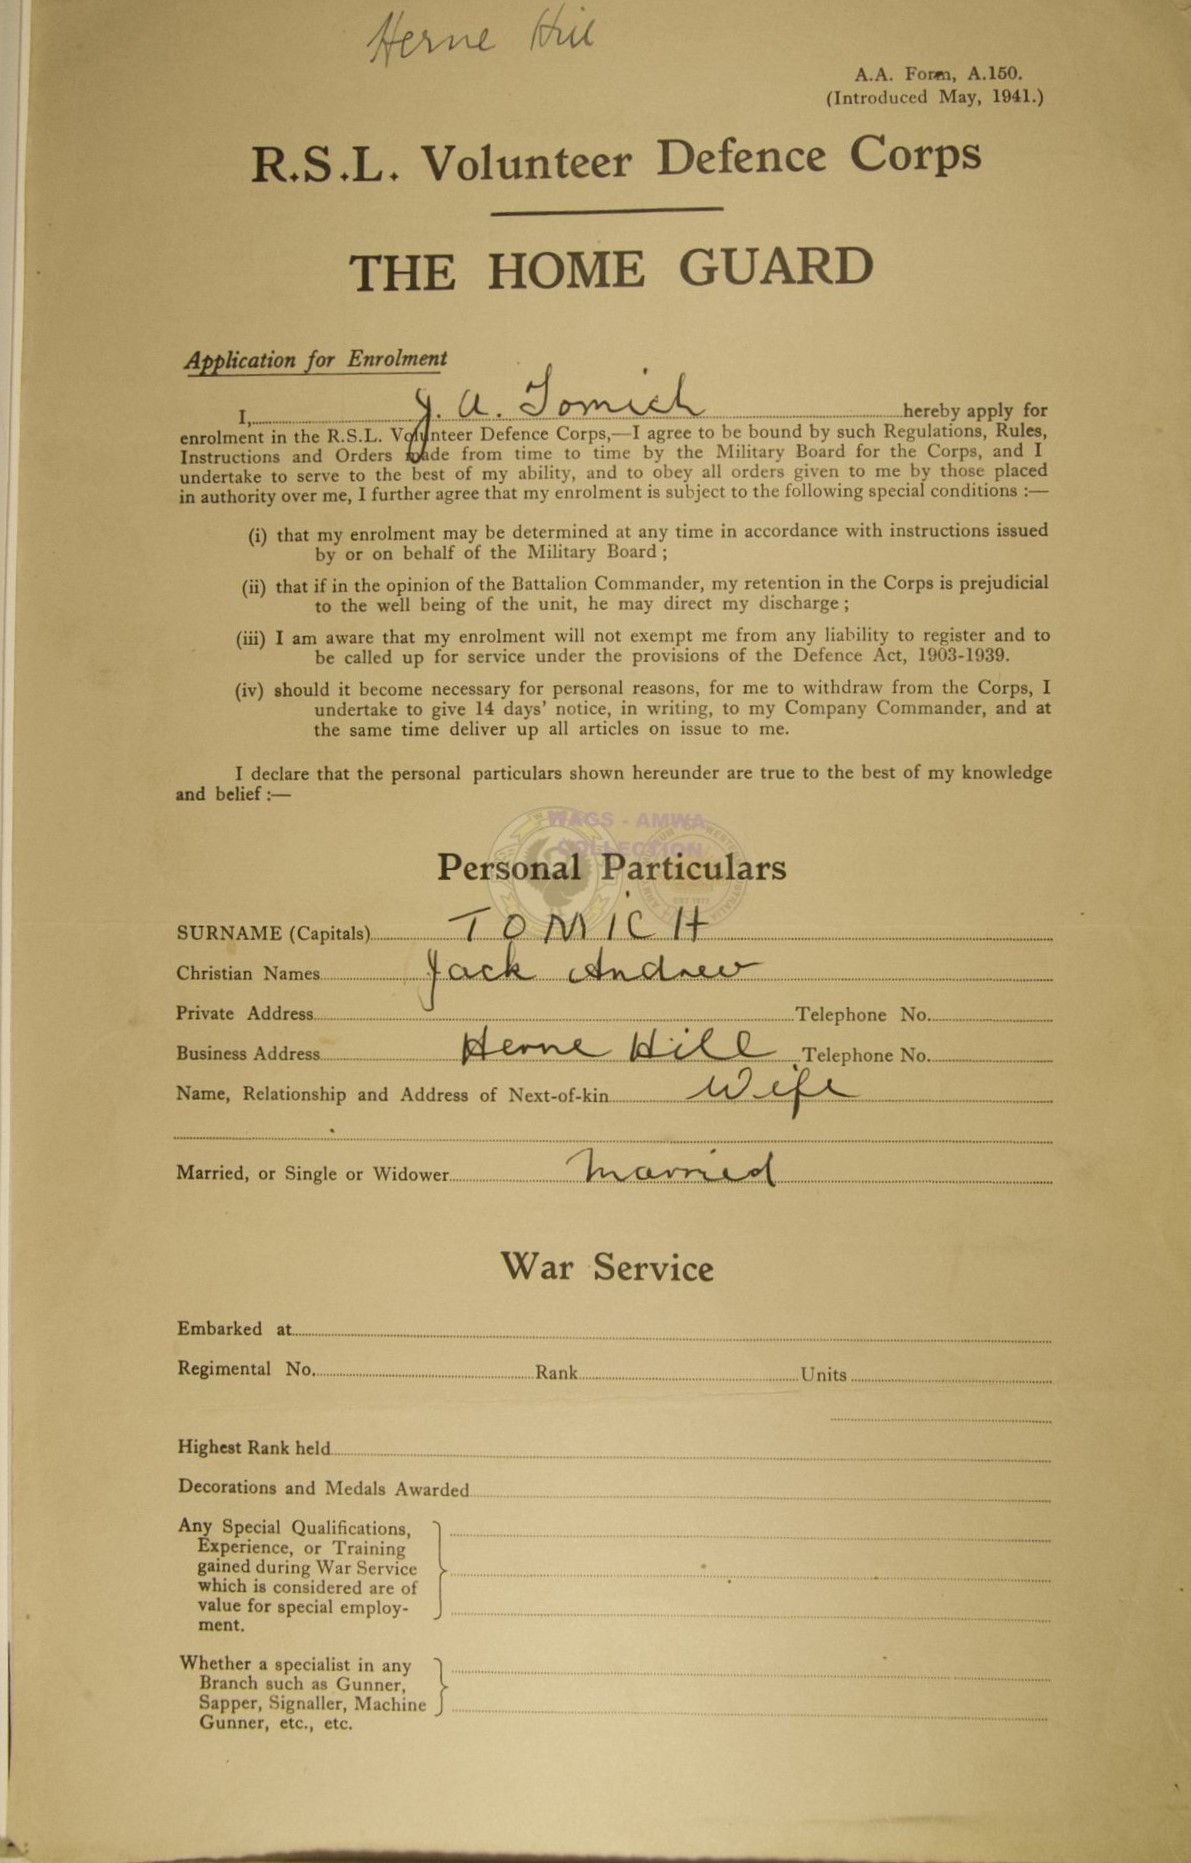 Herne Hill
A.A. Form, A.150.
(Introduced May, 1941.)
R.S.L. Volunteer Defence Corps
THE HOME GUARD
Application for Enrolment
I, J. A. Tomich hereby apply for
enrolment in the R.S.L. Volunteer Defence Corps,—I agree to be bound by such Regulations, Rules,
Instructions and Orders made from time to time by the Military Board for the Corps, and I
undertake to serve to the best of my ability, and to obey all orders given to me by those placed
in authority over me, I further agree that my enrolment is subject to the following special conditions :—
(i) that my enrolment may be determined at any time in accordance with instructions issued
by or on behalf of the Military Board ;
(ii) that if in the opinion of the Battalion Commander, my retention in the Corps is prejudicial
to the well being of the unit, he may direct my discharge ;
(iii) I am aware that my enrolment will not exempt me from any liability to register and to
be called up for service under the provisions of the Defence Act, 1903-1939.
(iv) should it become necessary for personal reasons, for me to withdraw from the Corps, I
undertake to give 14 days' notice, in writing, to my Company Commander, and at
the same time deliver up all articles on issue to me.
I declare that the personal particulars shown hereunder are true to the best of my knowledge
and belief :—
WAGS - AMWA
COLLECTION
Personal Particulars
SURNAME (Capitals) TOMICH
Christian Names Jack Andrew
Private Address Telephone No.
Business Address Herne Hill Telephone No.
Name, Relationship and Address of Next-of-kin Wife
Married, or Single or Widower Married
War Service
Embarked at
Regimental No. Rank Units
Highest Rank held
Decorations and Medals Awarded
Any Special Qualifications,
Experience, or Training
gained during War Service
which is considered are of
value for special employ-
ment.
Whether a specialist in any
Branch such as Gunner,
Sapper, Signaller, Machine
Gunner, etc., etc.